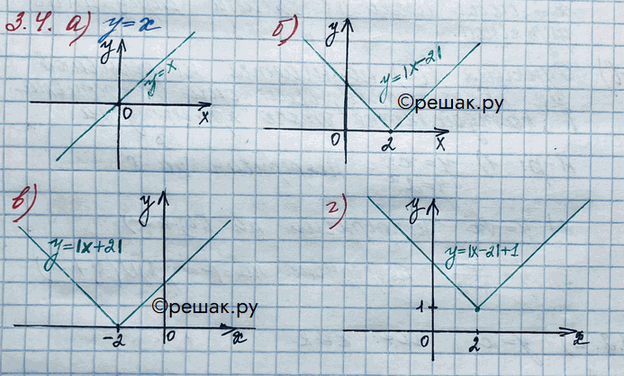 3.4. а) y=x
y
y=x
0
x
б)
y
y=|x-2|
©решак.ру
0
2
x
в)
y
y=|x+2|
©решак.ру
-2
0
x
г)
y
y=|x-2|+1
1
0
2
x